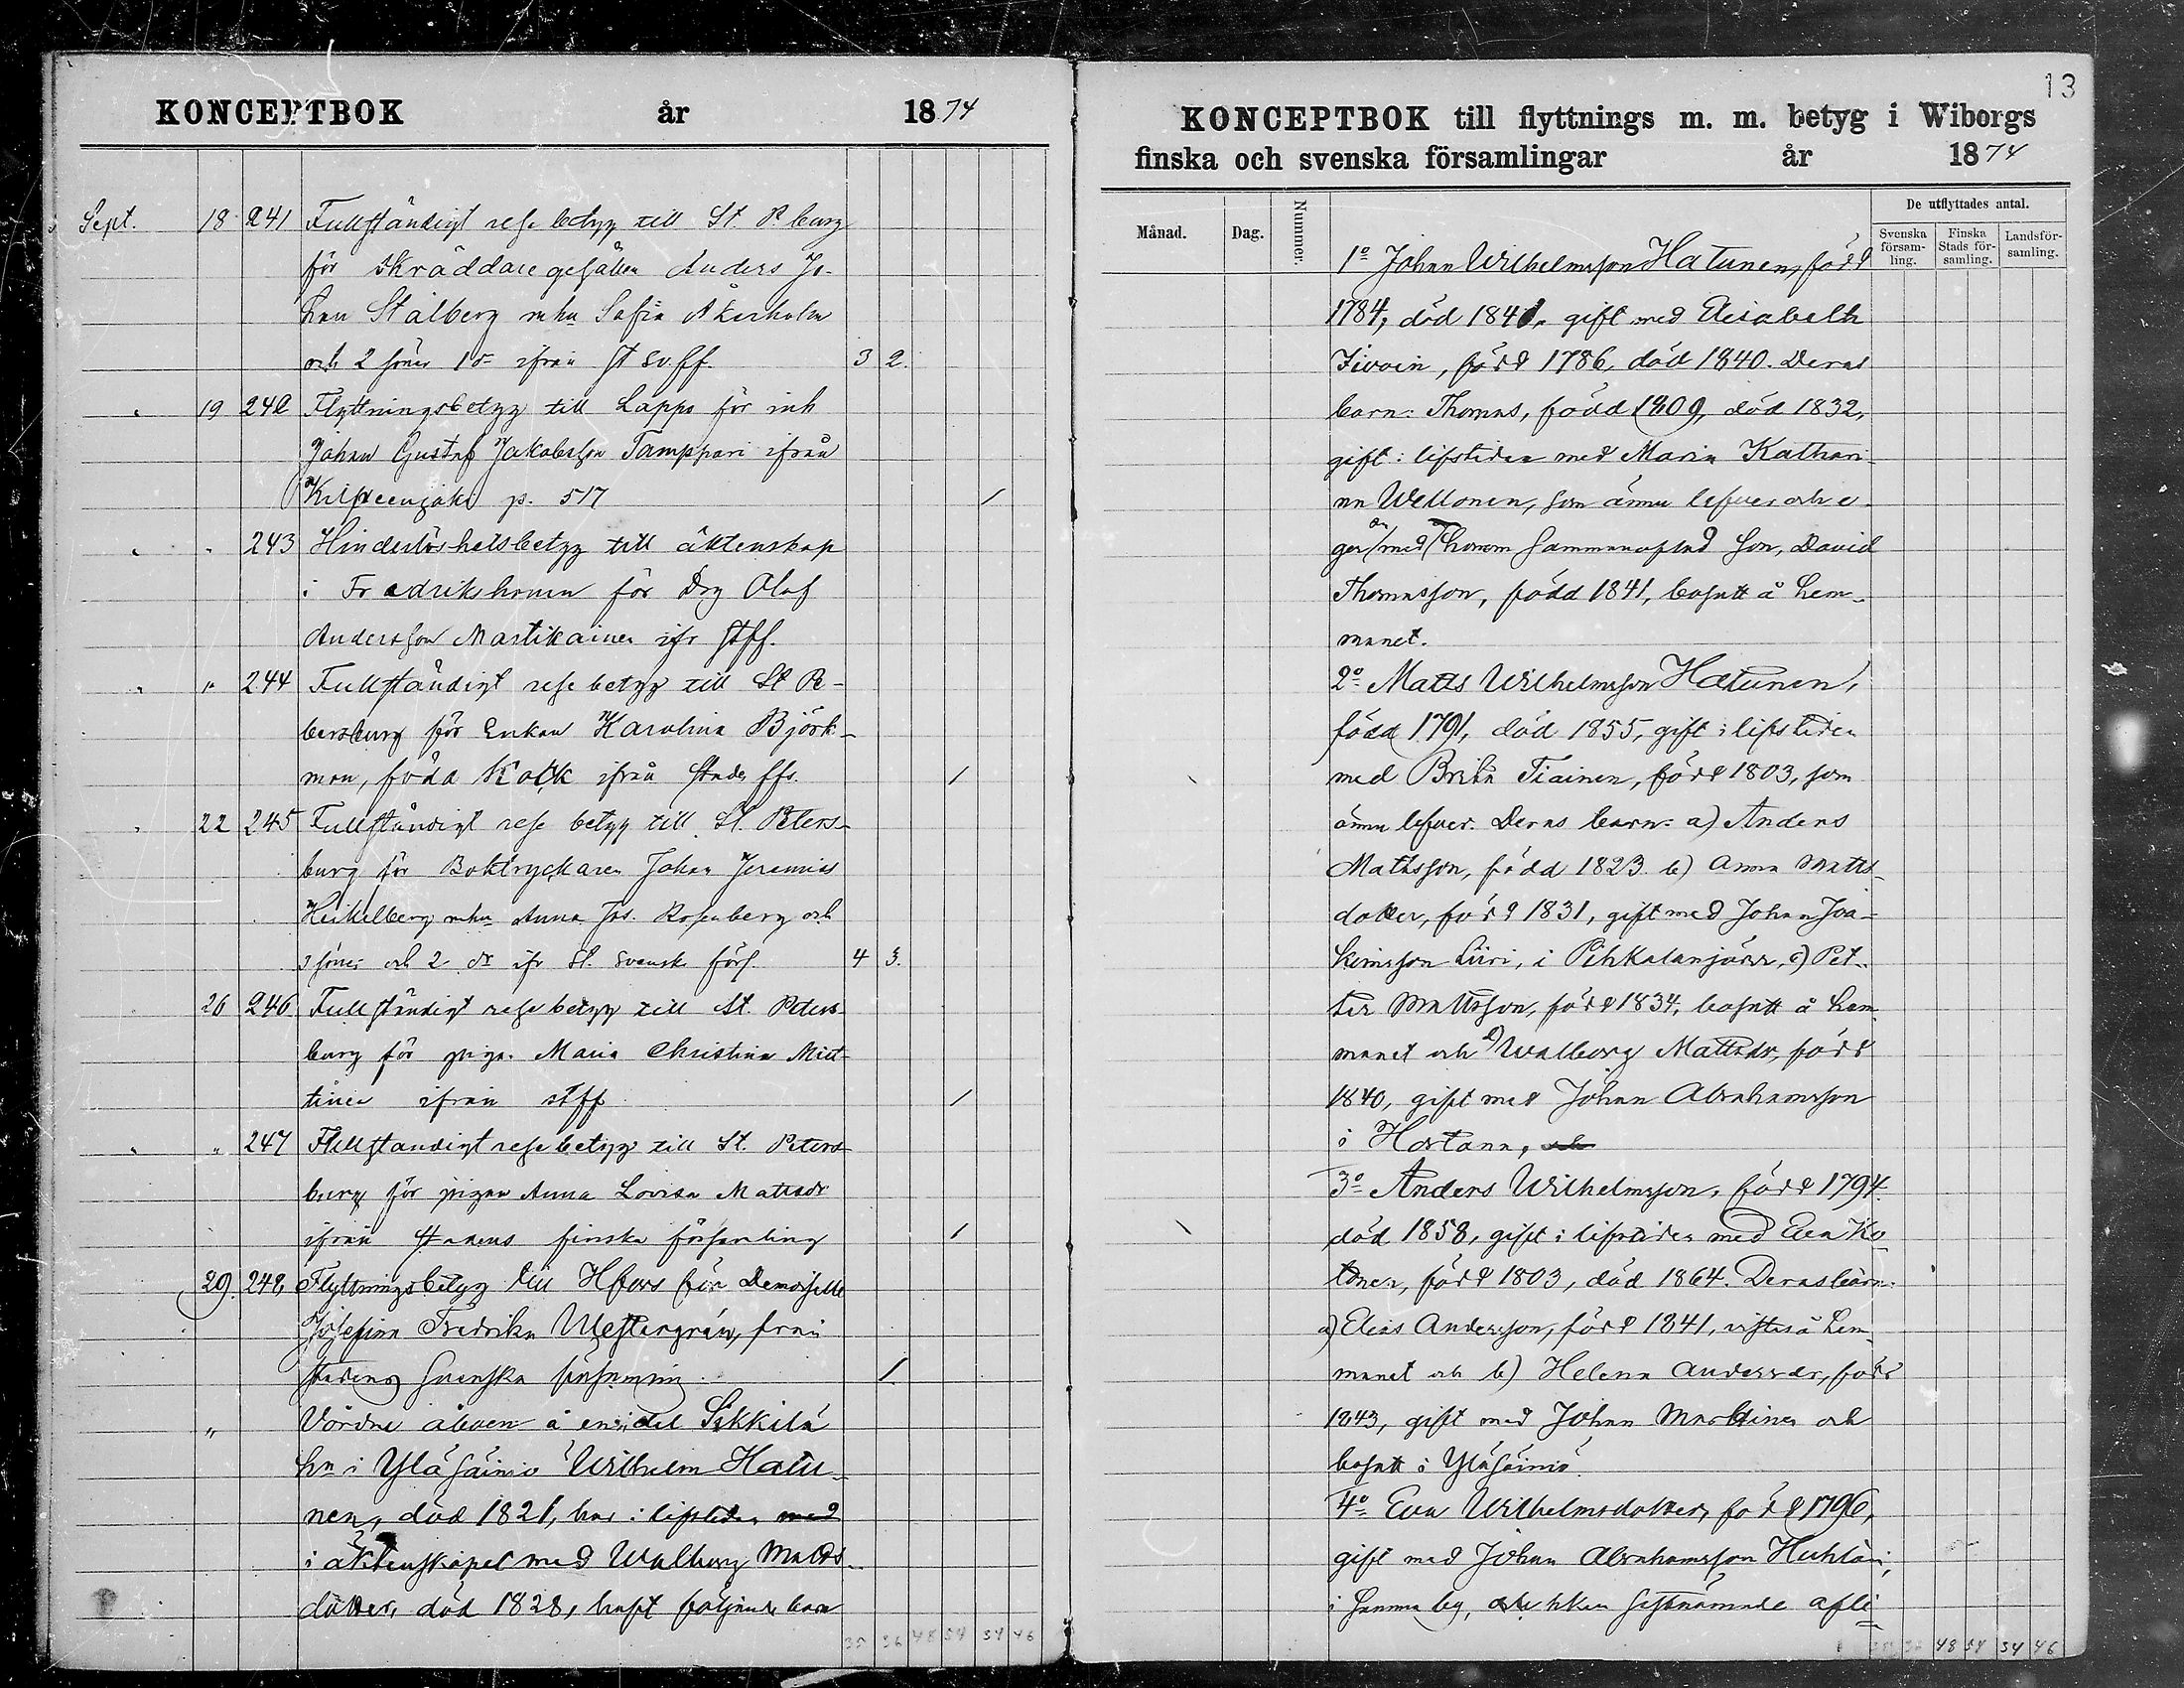 KONCEPTBOK år 1874
Sept. 18 241 Fullständigt rese betyg till St. P. burg
för skräddare gesällen Anders Jo-
han Stålberg mhu Sofia Åkerholm
och 2 söner 1 dr ifrån st sv. ff. 3 2.
" 19 242 Flyttningsbetyg till Lappo för inh
Johan Gustaf Jakobsson Tamppari ifrån
Kilpeenjoki p. 517 1
" " 243 Hinderlöshetsbetyg till äktenskap
i Fredrikshamn för Drg Olof
Andersson Martikainen ifr stff.
" " 244 Fullständigt rese betyg till St Pe-
tersburg för Enkan Karolina Björk-
man, föda Kock ifrån stads ffs. 1
" 22 245 Fullständigt rese betyg till St. Peters-
burg för Boktryckaren Johan Jeremias
Heikelberg mhu Anna Jos. Rosenberg och
3 söner och 2 dr ifr St. svensk förs. 4 3.
26 246 Fullständigt rese betyg till St. Peters-
burg för pigan Maria Christina Miet-
tinen ifrån stff 1
" " 247 Fullständigt rese betyg till St. Peters-
burg för pigan Anna Lovisa Mattsdr
ifrån stadens finska församling 1
29. 248, Flyttningsbetyg till Hfors för Demoiselle
Josefina Fredrika Westergrén, från
stadens svenska församling. 1
" Vördne åboen å en del Sikkilä
hn i Yläsäiniö Wilhelm Hatu-
nen, död 1821, har i lifstiden med
i äktenskapet med Walborg Matts-
dotter, död 1828, haft följande barn
35 36 48 54 34 46
13
KONCEPTBOK till flyttnings m. m. betyg i Wiborgs
finska och svenska församlingar år 1874
Månad. Dag. Nummer. De utflyttades antal.
Svenska församling. Finska Stads församling. Landsförsamling.
1o Johan Wilhelmsson Hatunen, född
1784, död 1841, gift med Elisabeth
Sivoin, född 1786, död 1840. Deras
barn: Thomas, född 1809, död 1832,
gift i lifstiden med Maria Kathari-
na Wellonen, som ännu lefver och e-
ger en med honom sammanaflad son, David
Thomasson, född 1841, bosatt å hem-
manet.
2o Matts Wilhelmsson Hatunen,
född 1791, död 1855, gift i lifstiden
med Brita Tiainen, född 1803, som
ännu lefver. Deras barn: a) Anders
Mattsson, född 1823. b) Anna Matts-
dotter, född 1831, gift med Johan Joa-
kimsson Liiri, i Pihkalanjärvi, c) Pet-
ter Mattsson, född 1834, bosatt å hem-
manet och d) Walborg Mattsdr, född
1840, gift med Johan Abrahamsson
i Hortana,
3o Anders Wilhelmsson, född 1794.
död 1858, gift i lifstiden med Eva Ko-
tonen, född 1803, död 1864. Deras barn:
a) Elias Andersson, född 1841, vistas å hem-
manet och b) Helena Andersdr, född
1843, gift med Johan Martinen och
bosatt i Yläsäiniö.
4o Eva Wilhelmsdotter, född 1796,
gift med Johan Abrahamsson Huhtani,
i samma by, hvilken sistnämnde afli-
48 54 34 46